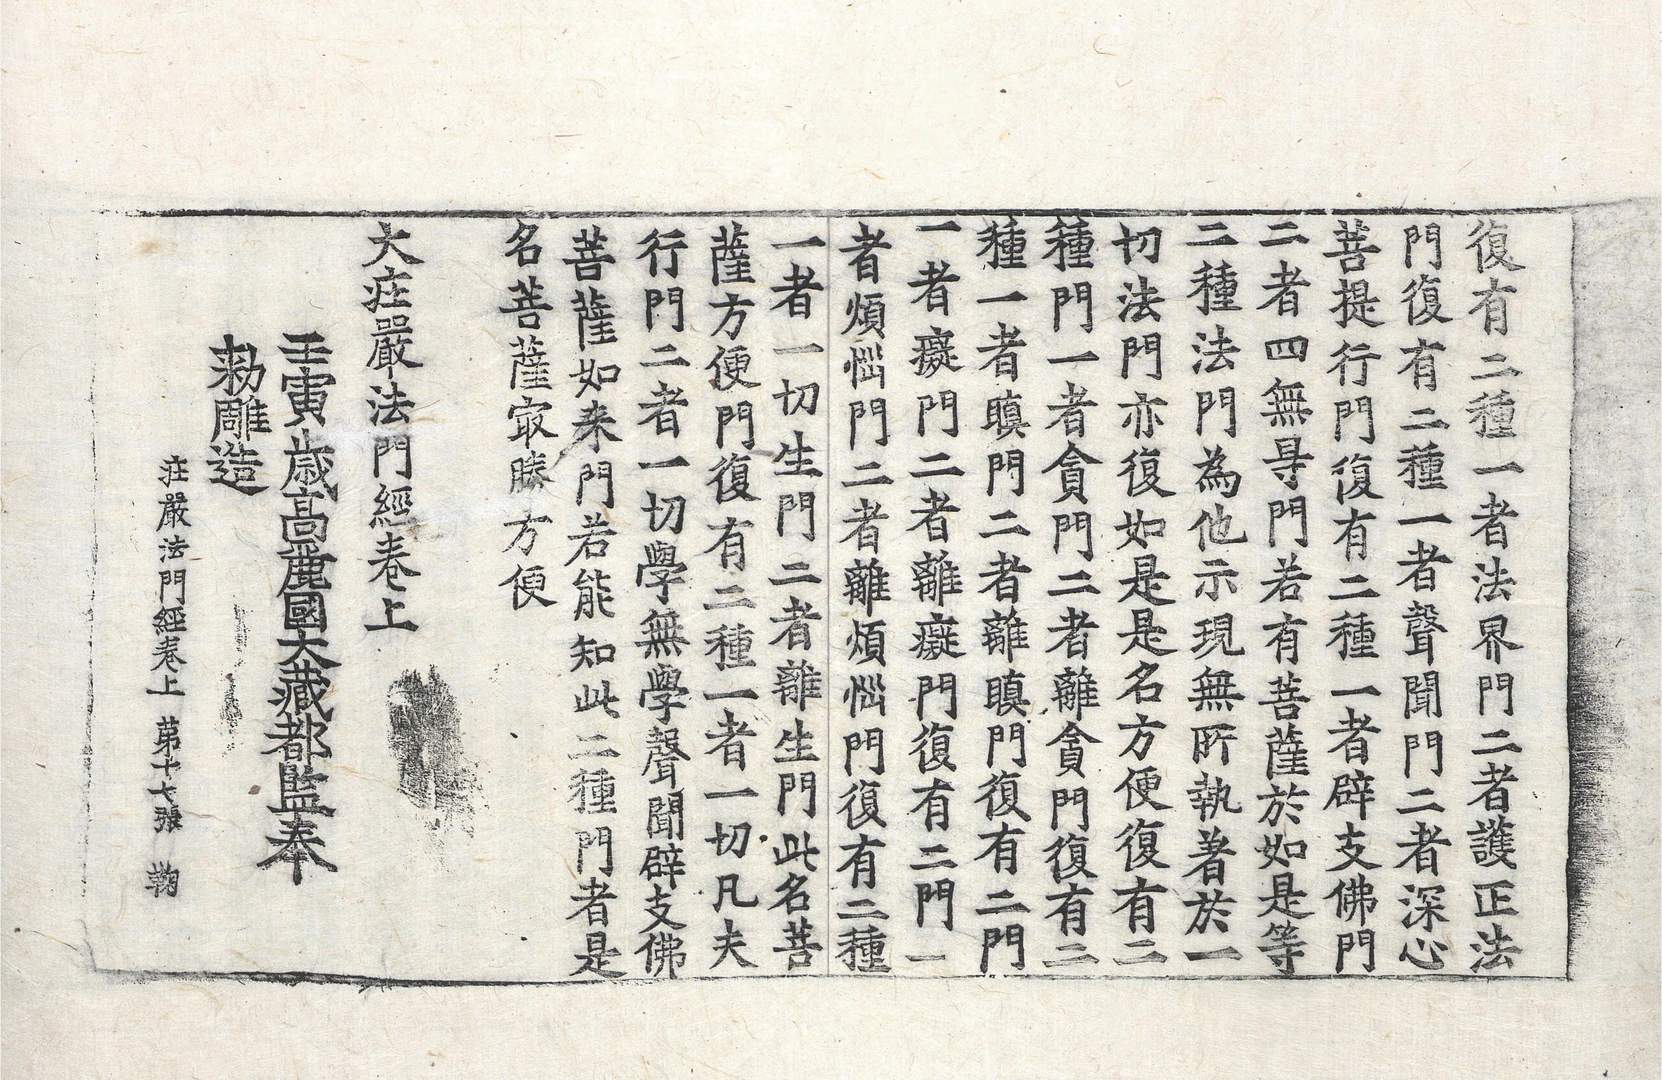 復有二種一者法界門二者護正法
門復有二種一者聲聞門二者深心
菩提行門復有二種一者辟支佛門
二者四無㝵門若有菩薩於如是等
二種法門為他示現無所執著於一
切法門亦復如是是名方便復有二
種門一者貪門二者離貪門復有二
種一者瞋門二者離瞋門復有二門
一者癡門二者離癡門復有二門一
者煩惱門二者離煩惱門復有二種
一者一切生門二者離生門此名菩
薩方便門復有二種一者一切凡夫
行門二者一切學無學聲聞辟支佛
菩薩如来門若能知此二種門者是
名菩薩㝡勝方便
大莊嚴法門經卷上
壬寅歲高麗國大藏都監奉
勑雕造
莊嚴法門經卷上 第十七張 鞠